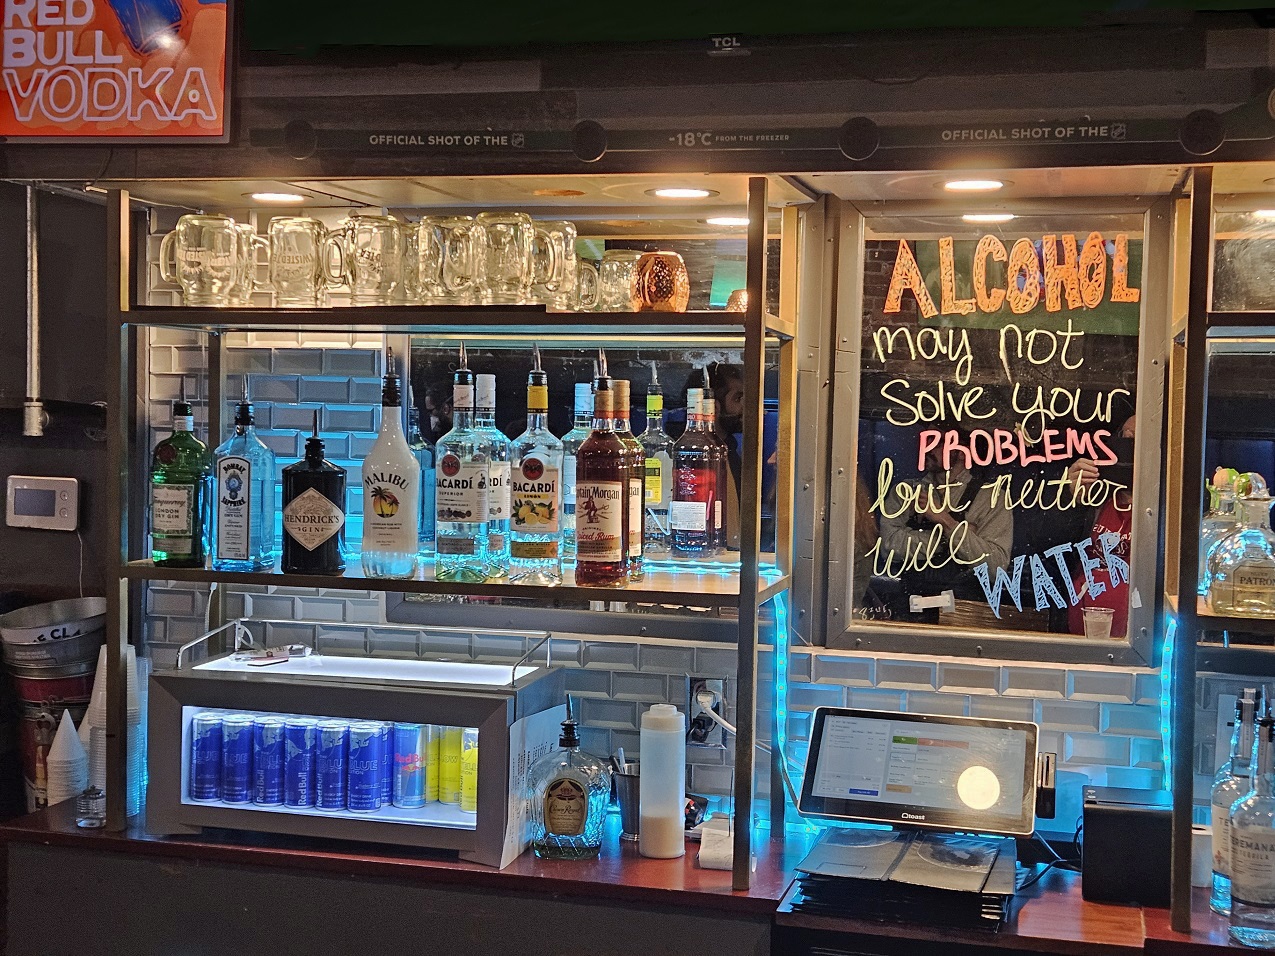 RED
BULL
VODKA
TCL
OFFICIAL SHOT OF THE
-18°C FROM THE FREEZER
OFFICIAL SHOT OF THE
ALCOHOL
may not
Solve your
PROBLEMS
but neither
will
WATER
Tanqueray
LONDON
DRY GIN
BOMBAY
SAPPHIRE
HENDRICK'S
GIN
MALIBU
BACARDÍ
SUPERIOR
BACARDÍ
LIMÓN
Captain Morgan
ORIGINAL
Spiced Rum
PATRÓN
Red Bull
Red Bull
Crown Royal
toast
TEREMANA
TEQUILA